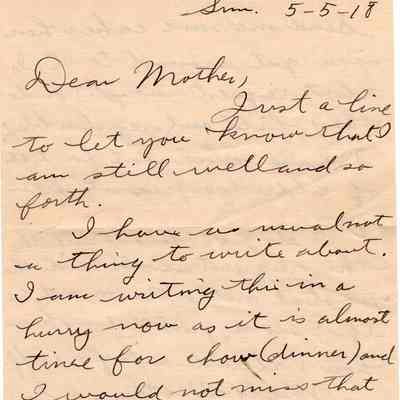 Sun. 5-5-18
Dear Mother,
Just a line
to let you know that I
am still well and so
forth.
I have as usual not
a thing to write about.
I am writing this in a
hurry now as it is almost
time for chow (dinner) and
I would not miss that